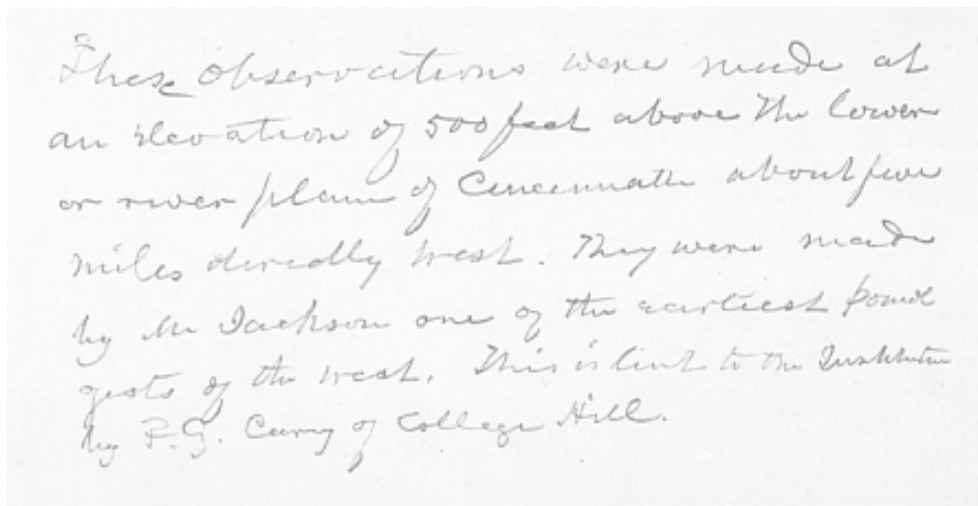 These observations were made at
an elevation of 500 feet above the lower
or river plain of Cincinnati about five
miles directly west. They were made
by Mr Jackson one of the earliest pomol
gists of the west. This is lent to the Institution
by F. G. Cary of College Hill.